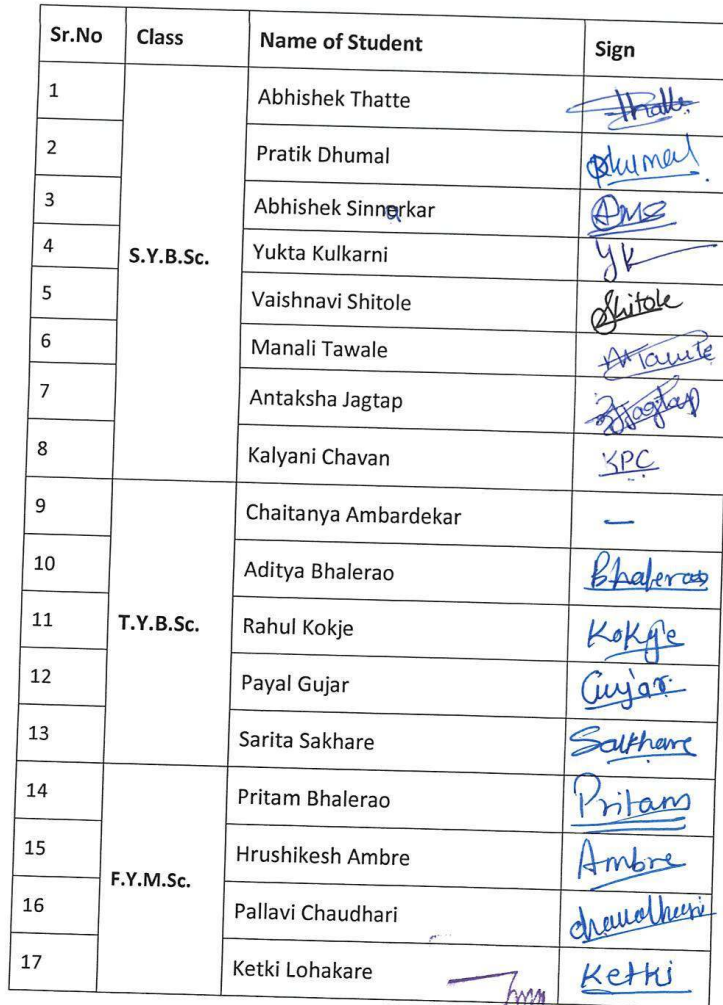 Sr.No Class Name of Student Sign
1 Abhishek Thatte Thatte
2 Pratik Dhumal Dhumal
3 Abhishek Sinnarkar AMS
4 Yukta Kulkarni YK
5 Vaishnavi Shitole Shitole
S.Y.B.Sc.
6 Manali Tawale
7 Antaksha Jagtap Jagtap
8 Kalyani Chavan KPC
9 Chaitanya Ambardekar —
10 Aditya Bhalerao Bhalerao
11 T.Y.B.Sc. Rahul Kokje Kokje
12 Payal Gujar Gujar
13 Sarita Sakhare Sakhare
14 Pritam Bhalerao Pritam
15 Hrushikesh Ambre Ambre
F.Y.M.Sc.
16 Pallavi Chaudhari Chaudhari
17 Ketki Lohakare Ketki